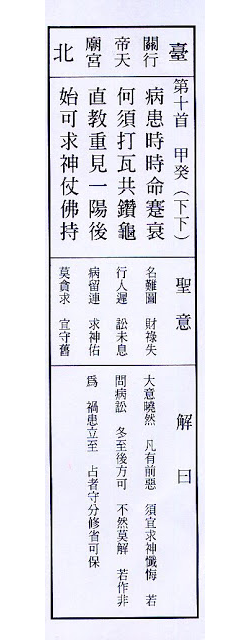 臺北
關行
帝天
廟宮
第十首 甲癸(下下)
病患時時命蹇衰
何須打瓦共鑽龜
直教重見一陽後
始可求神仗佛持
聖意
名難圖 財祿失
行人遲 訟未息
病留連 求神佑
莫貪求 宜守舊
解曰
大意曉然 凡有前惡 須宜求神懺悔 若
問病訟 冬至後方可 不然莫解 若作非
為 禍患立至 占者守分修省可保